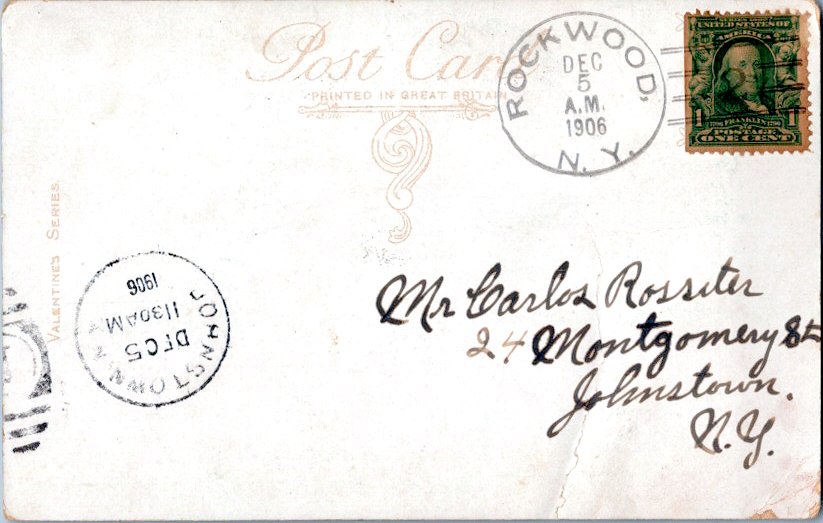 Post Card
PRINTED IN GREAT BRITAIN
VALENTINES SERIES.
ROCKWOOD,
DEC
5
A.M.
1906
N.Y.
SERIES 1902
UNITED STATES OF
AMERICA
2
1706 FRANKLIN 1790
1 1
POSTAGE
ONE CENT
JOHNSTOWN
DEC 5
1130AM
1906
Mr Carlos Rossiter
24 Montgomery St
Johnstown.
N.Y.